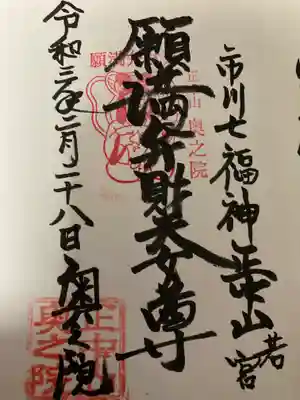 市川七福神 正中山
若宮
願満弁財天女尊
願満
正中山 奥之院
令和三年二月二十八日 奥之院
正中山
奥之院